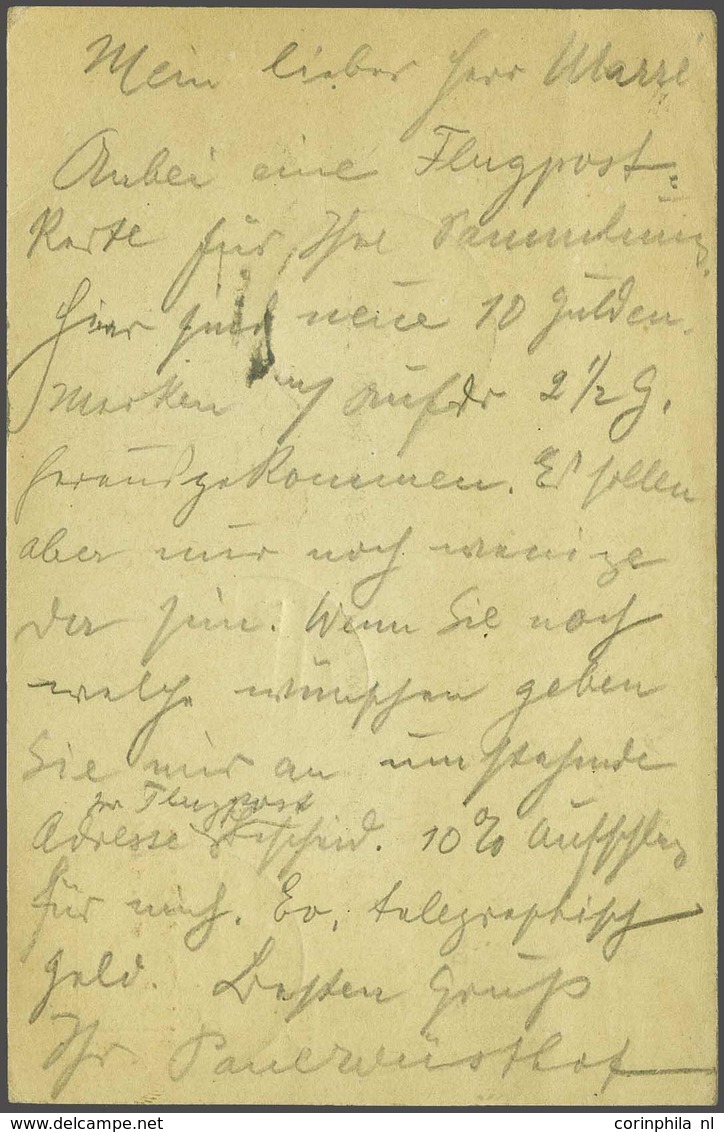 Mein lieber Herr Marré
Anbei eine Flugpost=
Karte für Ihre Sammlung.
Hier sind neue 10 Gulden.
Marken auf 2 1/2 G.
herausgekommen. Es sollen
aber nur noch wenige
da sein. Wenn Sie noch
welche wünschen geben
Sie mir an umstehende
pr Flugpost
Adresse Bescheid. 10% Aufschlag
für mich. Ev. telegraphisch
Geld. Besten Gruß
Ihr
corinphila nl